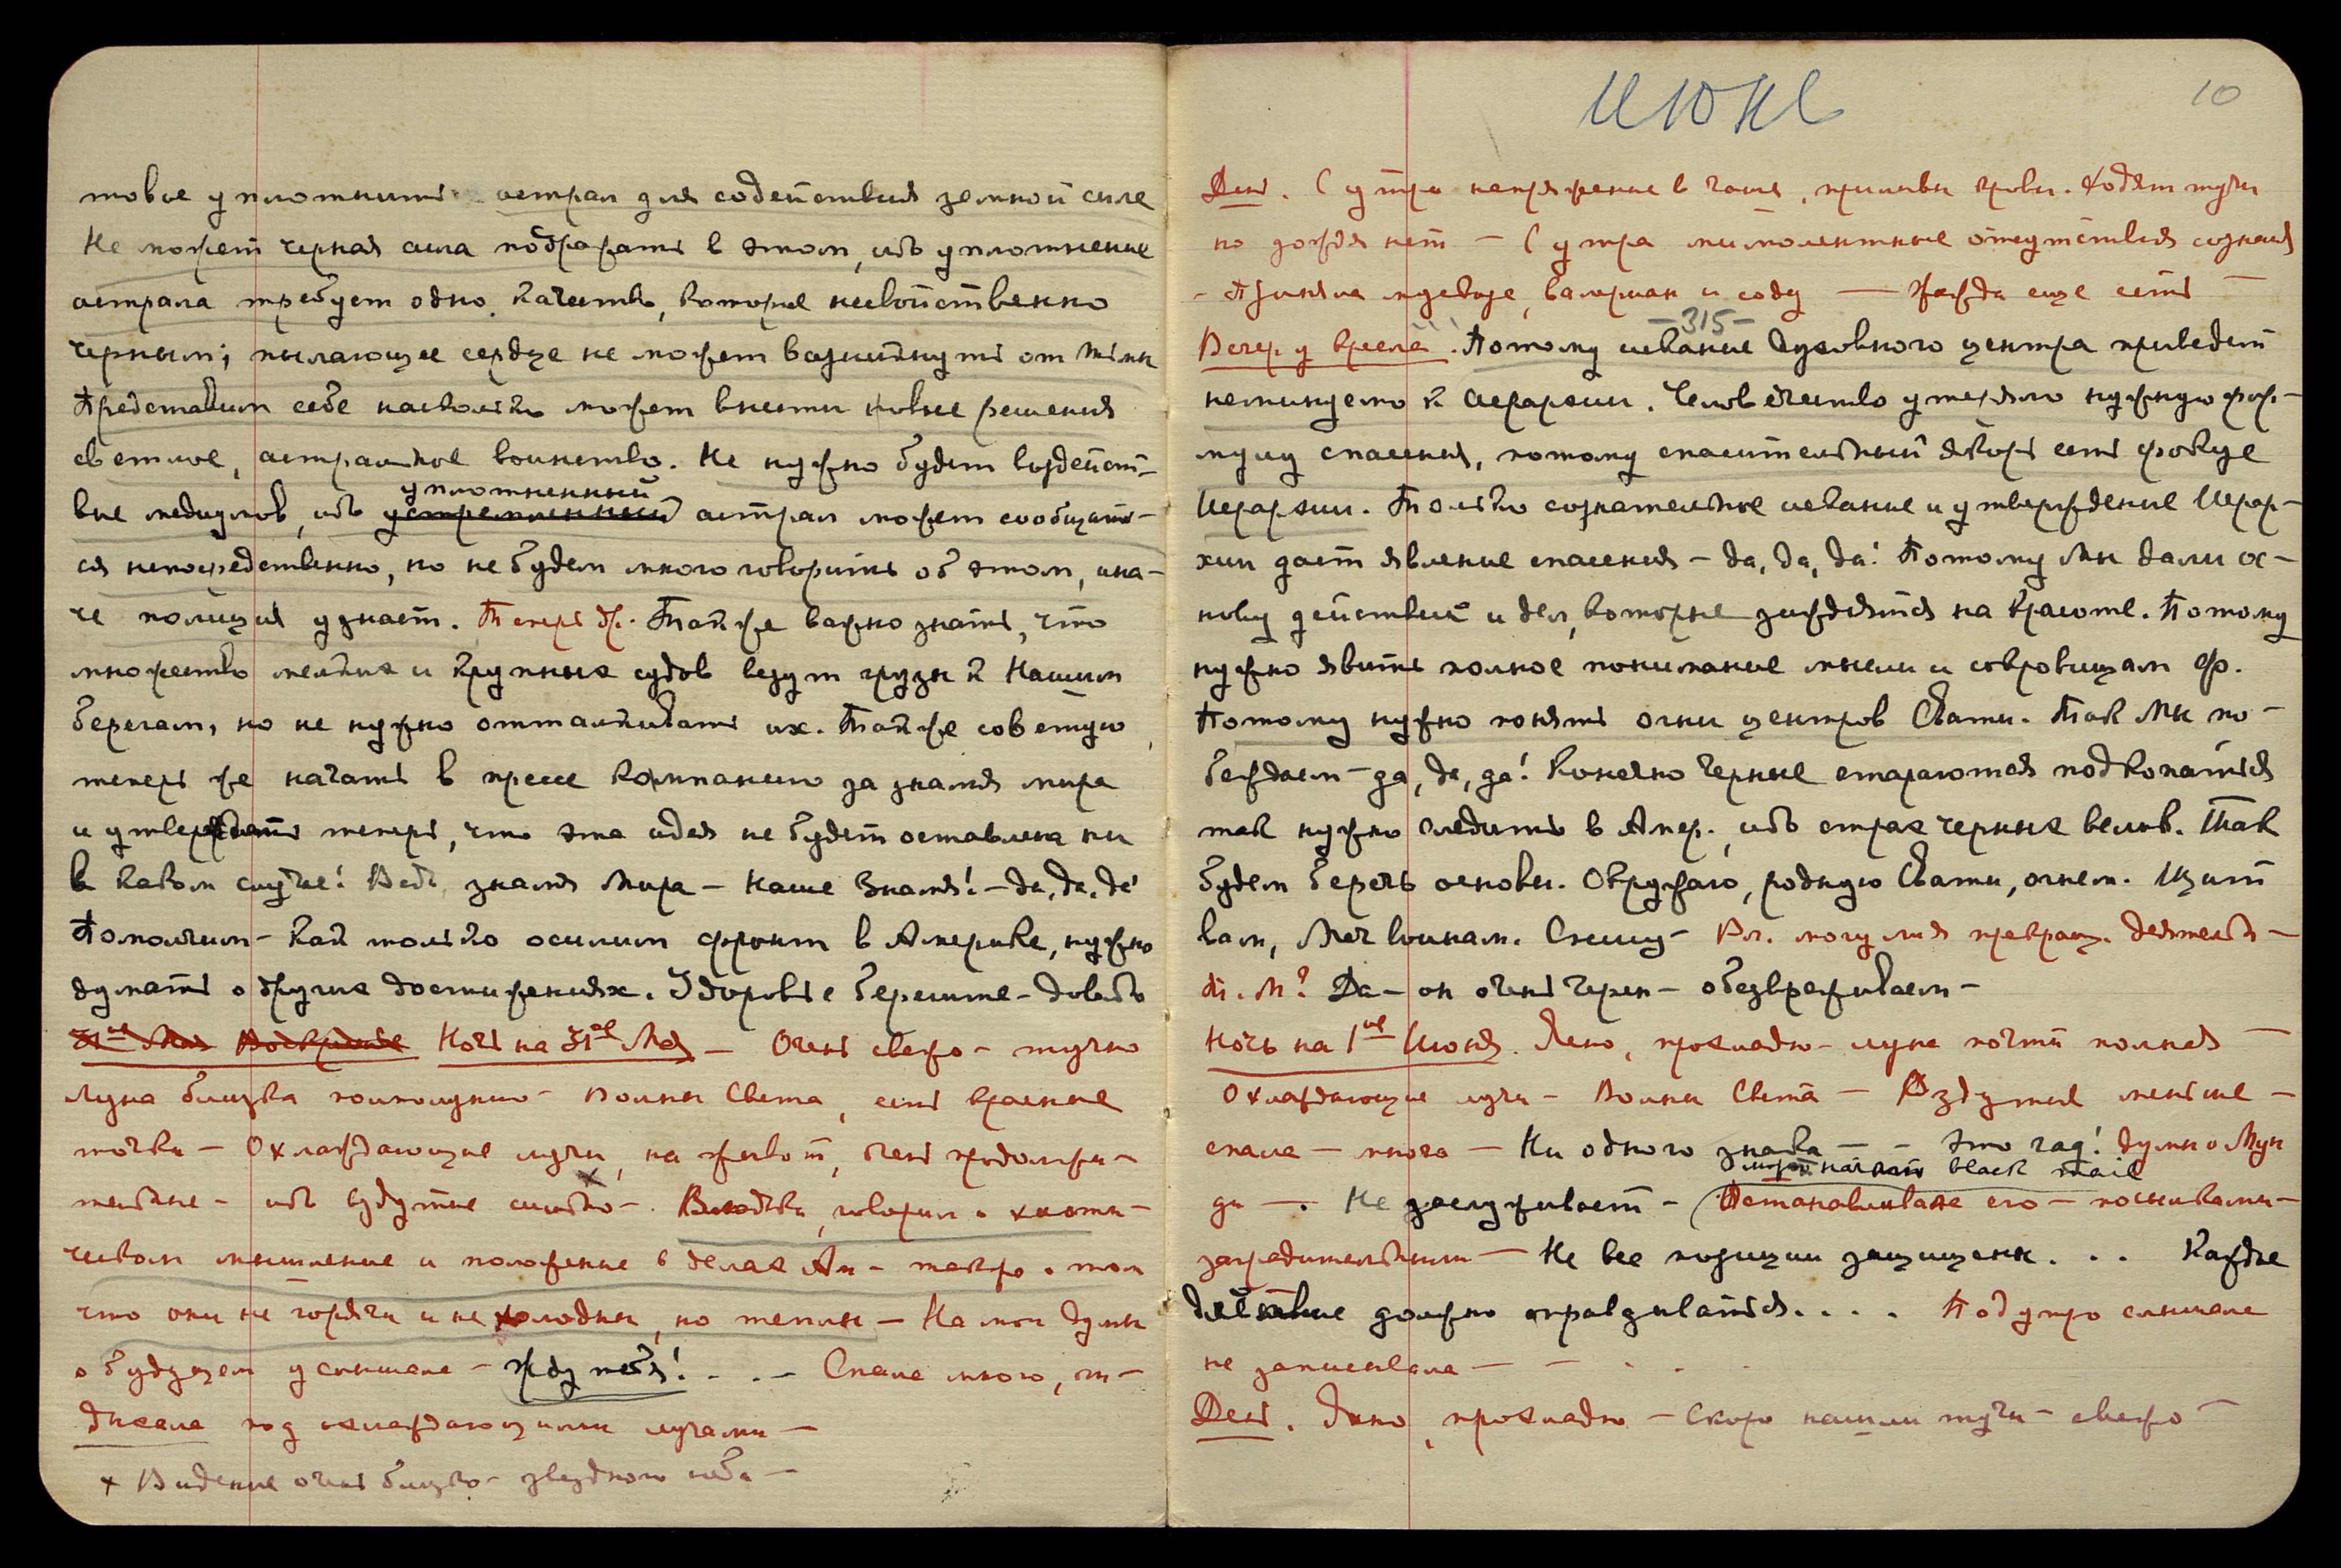 товые уплотнить астрал для содействия земной силе
Не может черная сила подражать в этом, ибо уплотнение
астрала требует одно качество, которое несвойственно
черным; пылающее сердце не может возникнуть от тьмы
Представим себе насколько может внести новые решения
светлое, астральное воинство. Не нужно будет воздейст-
вие медиумов, ибо устремленный уплотненный астрал может сообщать-
ся непосредственно, но не будем много говорить об этом, ина-
че полиция узнает. Теперь др. Также важно знать, что
множество мелких и крупных судов везут грузы к Нашим
берегам, но не нужно отталкивать их. Также советую
теперь же начать в прессе кампанию за знамя мира
и утверждать теперь, что эта идея не будет оставлена ни
в каком случае! Ведь знамя Мира – Наше Знамя! – да, да, да!
Помолчим – Как только осилим фронт в Америке, нужно
думать о других достижениях. Здоровье берегите – довольно
31ое Мая Ночь на 31ое Мая – Очень свежо – тучно
Луна близка полнолунию – Волны Света, есть красные
точки – Охлаждающие лучи на живот, очень продолжи-
тельные – ибо вздутие сильно – Владыка говорил о хаоти-
ческом мышлении и положение в делах Ам – также о том
что они не горячи и не холодны, но теплы – На мои думы
о будущем услышала – Жду тебя! . . – Спала много, от-
дыхала под охлаждающими лучами –
× Видение очень близко – звездного неба –
июнь
10
День. С утра напряжение в чаше, приливы крови. Ходят тучи
но дождя нет – С утра моментные отсутствия сознания
– Приняла валериан и соду – жажда еще есть
– 315 –
Вечер у кресла. Потому искание духовного центра приведет
неминуемо к Иерархии. Человечество утеряло нужную фор-
мулу спасения, потому спасительный якорь есть фокус
Иерархии. Только сознательное искание и утверждение Иерар-
хии дает явление спасения – да, да, да! Потому Мы дали ос-
нову действий и дел, которые зиждятся на Красоте. Потому
нужно явить полное понимание мысли и сокровищам Ф.
Потому нужно понять огни центров Свати. Так Мы по-
беждаем – да, да, да! Конечно черные стараются подкопаться
так нужно следить в Амер., ибо страх черных велик. Так
будем беречь основы. Окружаю, родную Свати, огнем. Щит
вам, Меч воинам. Спешу – Вл. могу ли я прекращ. деятельн –
М? Да – он очень черен – обезвреживаем –
Ночь на 1ое Июня. Ясно, прохладно – луна почти полная –
Охлаждающие лучи – Волны Света – Вздутие меньше –
спала – много – Ни одного знака – – Это гад! думы о Мун
ди – . Не заслуживает – Останавливаем его – посылками –
может начать black mail
заградительными – Не все позиции защищены. . . Каждое
действие должно оправдываться. . . . Под утро слышала
не записывала – – . .
День. Ясно, прохладно – скоро нашли тучи – свежо –